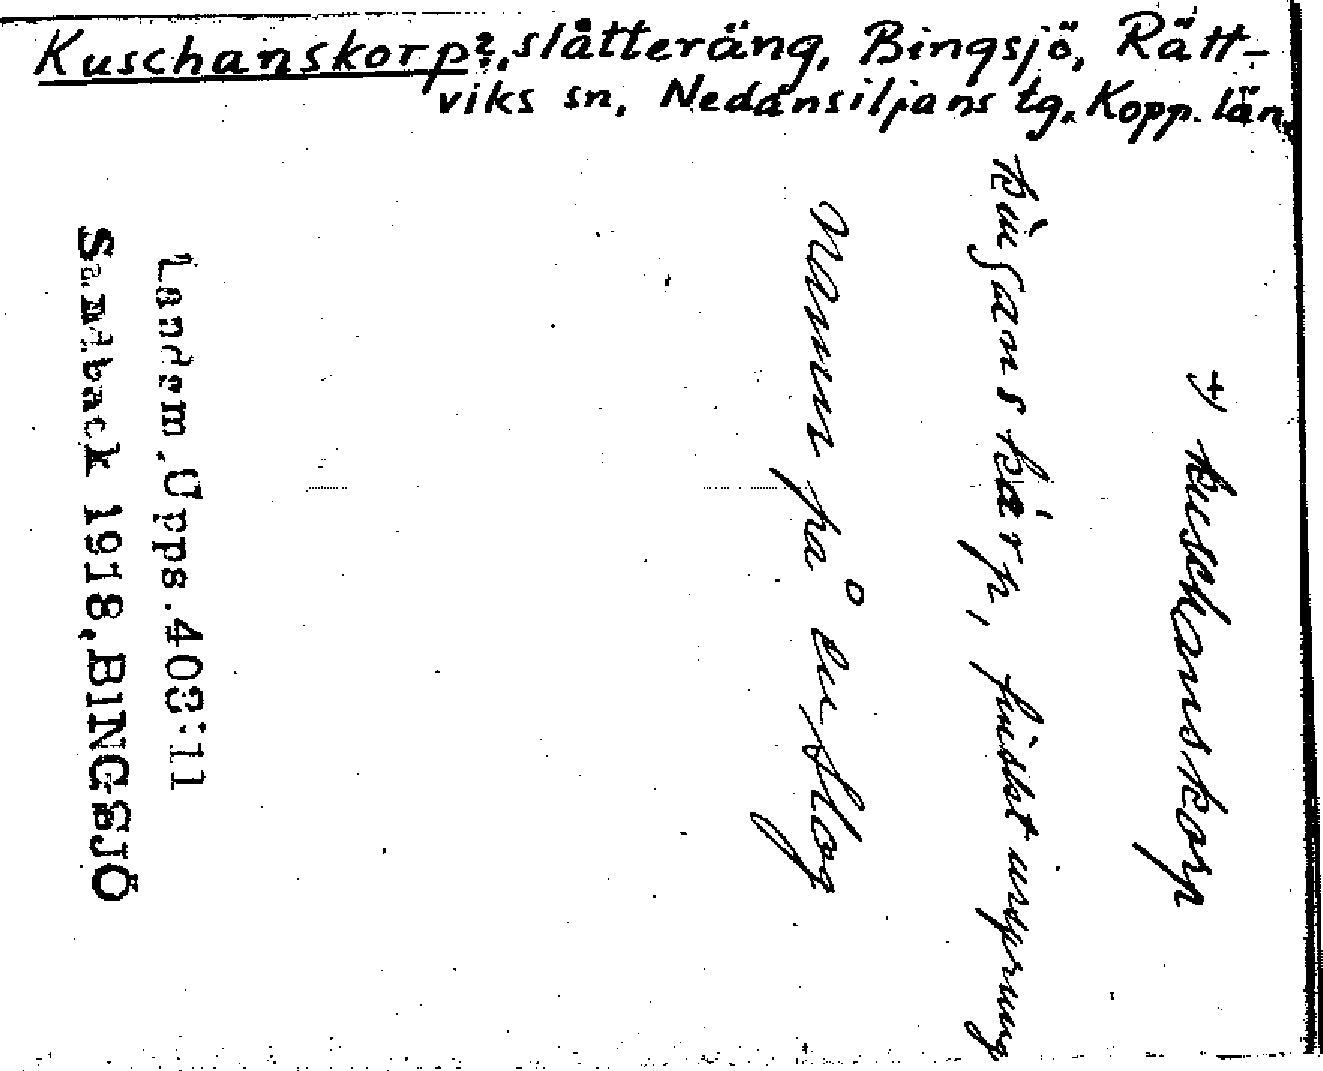 Kuschanskorp?, slåtteräng, Bingsjö, Rätt-
viks sn, Nedansiljans tg. Kopp. län.
+) Kuschanskorp
finskt ursprung
Namn på en slog
Landsm. Upps. 408:11
Sandback 1918, BINGSJÖ